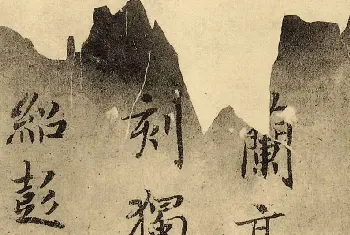 蘭亭
刻獨
紹彭